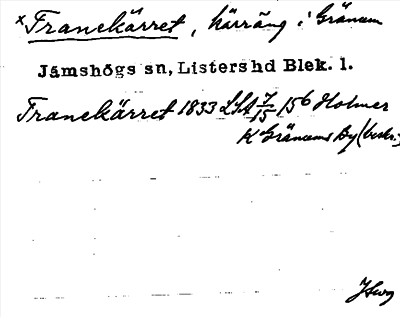 ×Franekärret, kärräng i Gränum
Jämshögs sn, Listers hd Blek. l.
Franekärret 1833 LSA 7/15 156 Holmer
K Gränums By (beskr.)